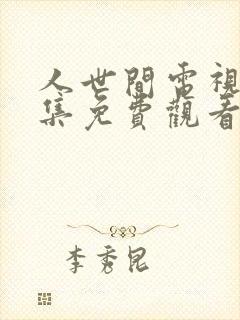 人世間電視
集免費觀看
李秀昆